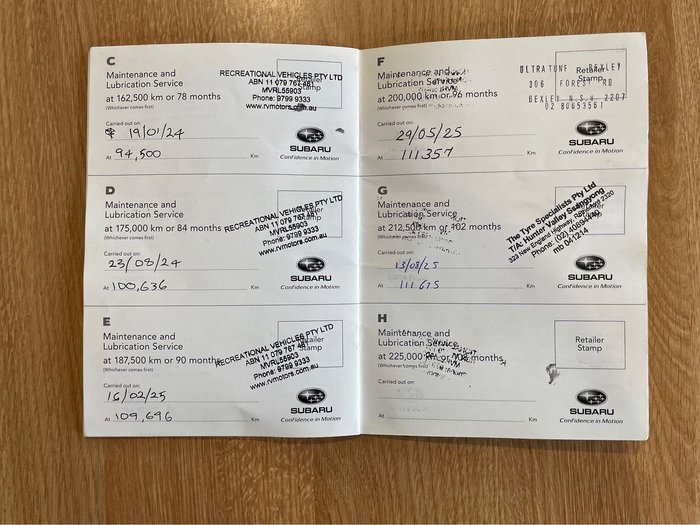 C
Maintenance and
Lubrication Service
at 162,500 km or 78 months
(Whichever comes first)
RECREATIONAL VEHICLES PTY LTD
ABN 11 079 767 481
MVRL55903
Phone: 9799 9333
www.rvmotors.com.au
Retailer
Stamp
Carried out on:
19/01/24
At 94,500 Km
SUBARU
Confidence in Motion
D
Maintenance and
Lubrication Service
at 175,000 km or 84 months
(Whichever comes first)
RECREATIONAL VEHICLES PTY LTD
ABN 11 079 767 481
MVRL55903
Phone: 9799 9333
www.rvmotors.com.au
Retailer
Stamp
Carried out on:
23/08/24
At 100,636 Km
SUBARU
Confidence in Motion
E
Maintenance and
Lubrication Service
at 187,500 km or 90 months
(Whichever comes first)
RECREATIONAL VEHICLES PTY LTD
ABN 11 079 767 481
MVRL55903
Phone: 9799 9333
www.rvmotors.com.au
Retailer
Stamp
Carried out on:
16/02/25
At 109,696 Km
SUBARU
Confidence in Motion
F
Maintenance and
Lubrication Service
at 200,000 km or 96 months
(Whichever comes first)
ULTRATUNE BEXLEY
306 FOREST RD
BEXLEY N.S.W 2207
02 80653561
Retailer
Stamp
Carried out on:
29/05/25
At 111357 Km
SUBARU
Confidence in Motion
G
Maintenance and
Lubrication Service
at 212,500 km or 102 months
(Whichever comes first)
The Tyre Specialists Pty Ltd
T/A Hunter Valley Ssangyong
323 New England Highway, 2320
Phone: (02) 40894440
MD 041214
Carried out on:
13/08/25
At 111675 Km
SUBARU
Confidence in Motion
H
Maintenance and
Lubrication Service
at 225,000 km or months
(Whichever comes first)
Retailer
Stamp
Carried out on:
At Km
SUBARU
Confidence in Motion